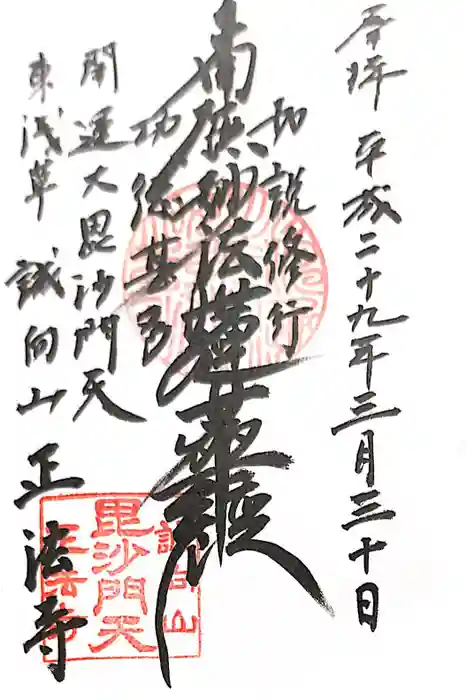 奉拝 平成二十九年三月三十日
如説修行
南無妙法蓮華経
功徳甚多
開運大毘沙門天
東浅草 誠向山
正法寺
毘沙門天
誠向山
正法寺